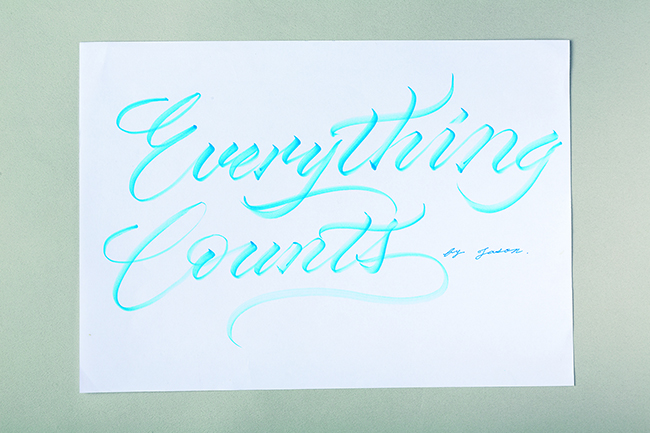 Everything
Counts
by Jason.